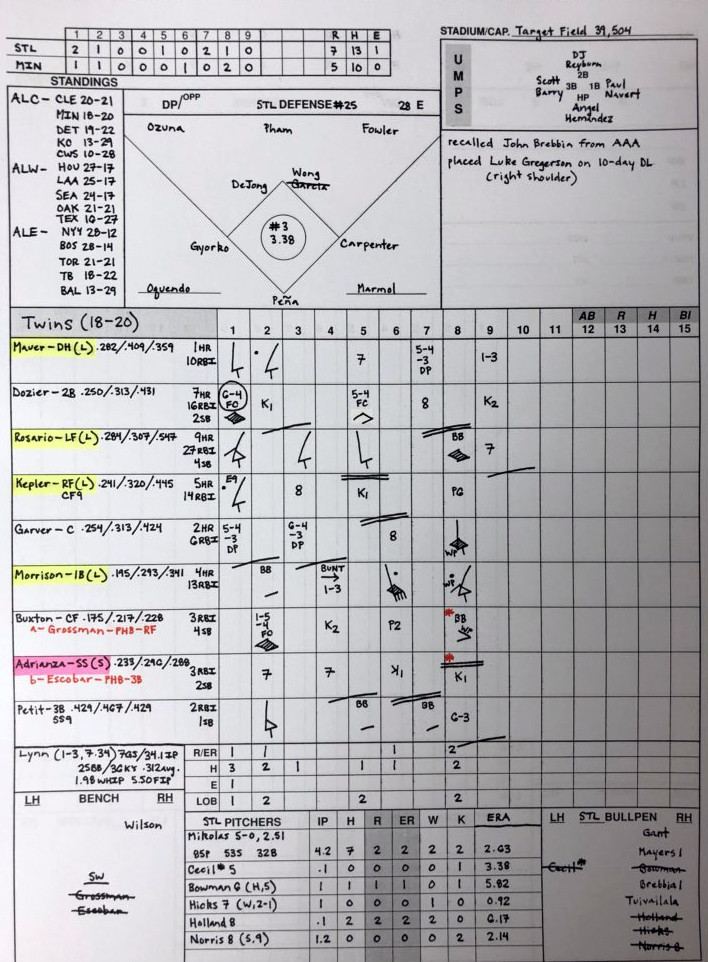 1 2 3 4 5 6 7 8 9 R H E
STL 2 1 0 0 1 0 2 1 0 7 13 1
MIN 1 1 0 0 0 1 0 2 0 5 10 0
STADIUM/CAP. Target Field 39,504
UMPS
DJ
Reyburn
2B
Scott Barry 3B
1B Paul Nauert
HP
Angel
Hernández
STANDINGS
ALC- CLE 20-21
MIN 18-20
DET 19-22
KC 13-29
CWS 10-28
ALW- HOU 27-17
LAA 25-17
SEA 24-17
OAK 21-21
TEX 16-27
ALE- NYY 28-12
BOS 28-14
TOR 21-21
TB 18-22
BAL 13-29
DP/OPP STL DEFENSE #25 28 E
Ozuna Pham Fowler
Wong
DeJong Garcia
#3
3.38
Gyorko Carpenter
Oquendo Peña Marmol
recalled John Brebbia from AAA
placed Luke Gregerson on 10-day DL
(right shoulder)
Twins (18-20) 1 2 3 4 5 6 7 8 9 10 11 12 13 14 15
AB R H BI
Mauer-DH (L) .282/.409/.359 1HR
10RBI
7 5-4
-3
DP 1-3
Dozier-2B .250/.313/.431 7HR
16RBI
2SB
6-4
FO K1 5-4
FC 8 K2
Rosario-LF (L) .284/.307/.547 9HR
27RBI
4SB
BB 7
Kepler-RF (L) .241/.320/.445 5HR
CF9 14RBI
E9 8 K1 PG
Garver-C .254/.313/.424 2HR
6RBI
5-4
-3
DP 6-4
-3
DP 8 WP
Morrison-1B (L) .195/.293/.341 4HR
13RBI
BB BUNT
1-3 WP
Buxton-CF .175/.217/.228 3RBI
a- Grossman-PHB-RF 4SB
1-5
-4
FO K2 P2 BB
Adrianza-SS (S) .233/.296/.288 3RBI
b- Escobar-PHB-3B 2SB
7 7 K1 K1
Petit-3B .429/.467/.429 2RBI
SS9 1SB
BB BB G-3
Lynn (1-3, 7.34) 7GS/34.1IP
25BB/36K .312Avg.
1.98WHIP 5.50FIP
R/ER 1 1 1 2
H 3 2 1 1 1 2
E 1
LOB 1 2 2 2
LH BENCH RH
Wilson
SW
Grossman
Escobar
STL PITCHERS IP H R ER W K ERA
Mikolas 5-0, 2.51
85P 53S 32B 4.2 7 2 2 2 2 2.63
Cecil* 5 .1 0 0 0 0 1 3.38
Bowman 6 (H,5) 1 1 1 1 0 1 5.82
Hicks 7 (W,2-1) 1 0 0 0 1 0 0.92
Holland 8 .1 2 2 2 2 0 6.17
Norris 8 (S,9) 1.2 0 0 0 0 2 2.14
LH STL BULLPEN RH
Gant
Mayers 1
Cecil* Bowman
Brebbia 1
Tuivailala
Holland
Hicks
Norris 8